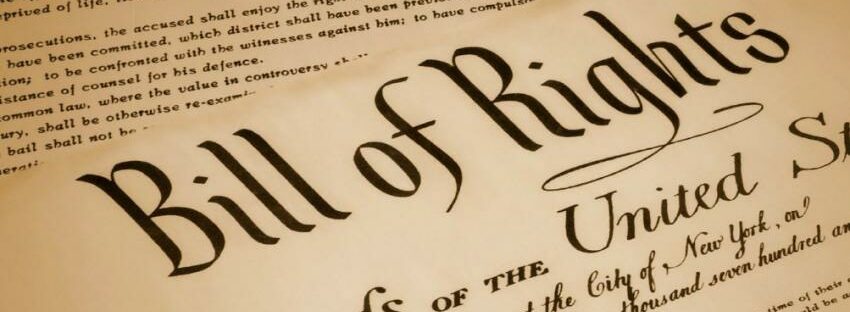 prived of life,
prosecutions, the accused shall enjoy the
have been committed, which district shall have been
tion; to be confronted with the witnesses against him; to have
istance of counsel for his defence.
ommon law, where the value in controversy
ury, shall be otherwise re-exami
bail shall not be
Bill of Rights
OF THE United St
the City of New York, on
thousand seven hundred an
time of their